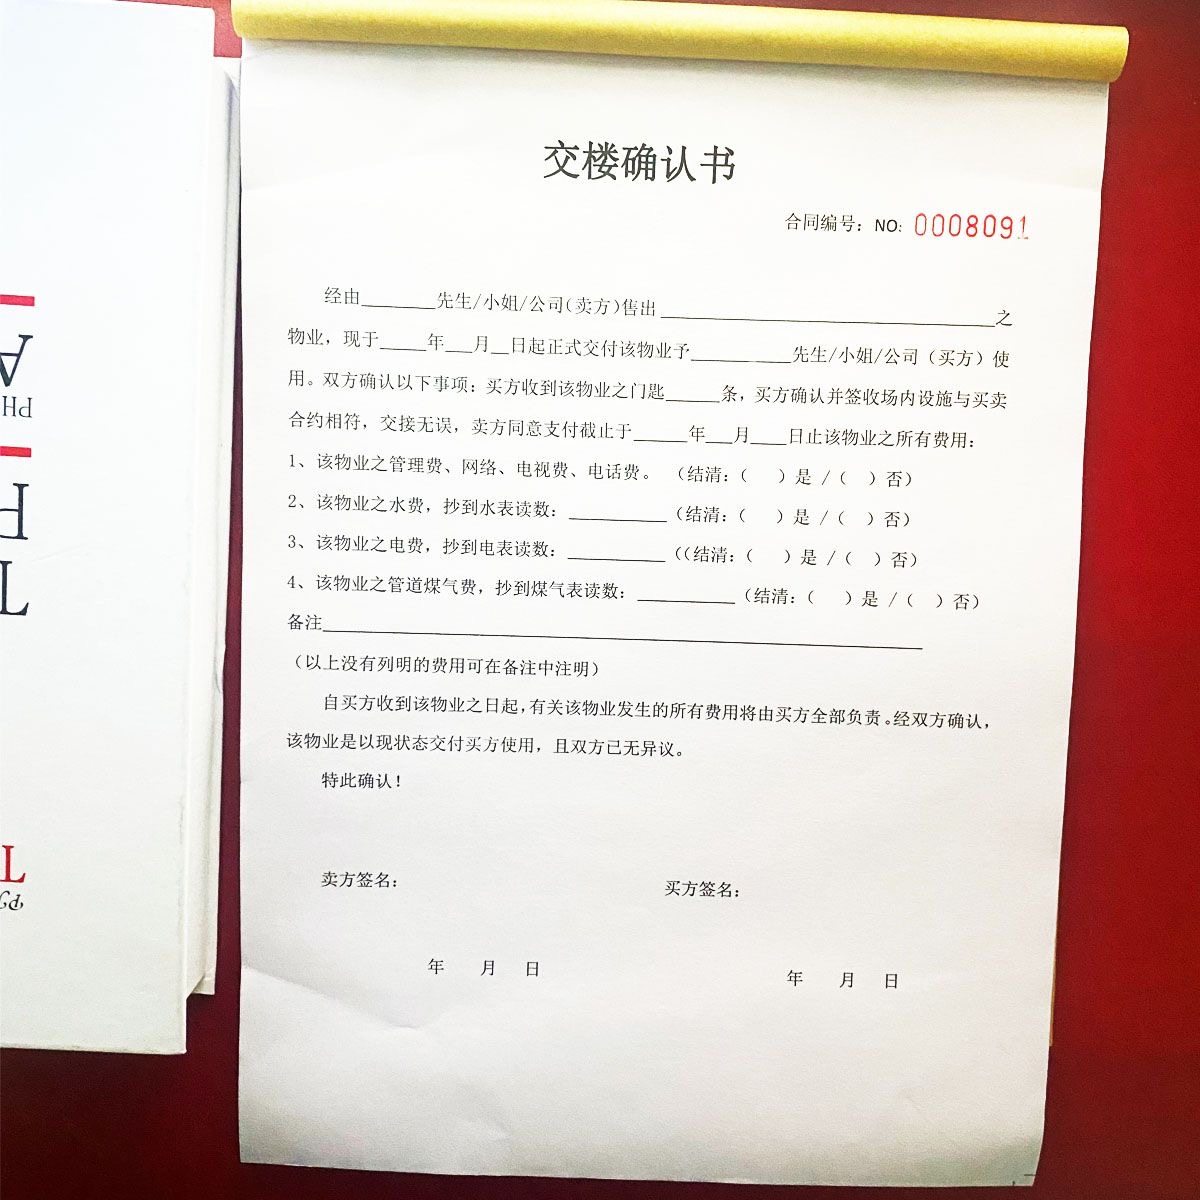 交楼确认书
合同编号：NO: 0008091
经由________先生/小姐/公司(卖方)售出____________________________________之
物业，现于_____年___月__日起正式交付该物业予___________先生/小姐/公司（买方）使
用。双方确认以下事项：买方收到该物业之门匙______条，买方确认并签收场内设施与买卖
合约相符，交接无误，卖方同意支付截止于______年___月____日止该物业之所有费用：
1、该物业之管理费、网络、电视费、电话费。（结清：（ ）是 /（ ）否）
2、该物业之水费，抄到水表读数：___________（结清：（ ）是 /（ ）否）
3、该物业之电费，抄到电表读数：___________（（结清：（ ）是 /（ ）否）
4、该物业之管道煤气费，抄到煤气表读数：___________（结清：（ ）是 /（ ）否）
备注____________________________________________________________________
（以上没有列明的费用可在备注中注明）
自买方收到该物业之日起，有关该物业发生的所有费用将由买方全部负责。经双方确认，
该物业是以现状态交付买方使用，且双方已无异议。
特此确认！
卖方签名： 买方签名：
年 月 日 年 月 日